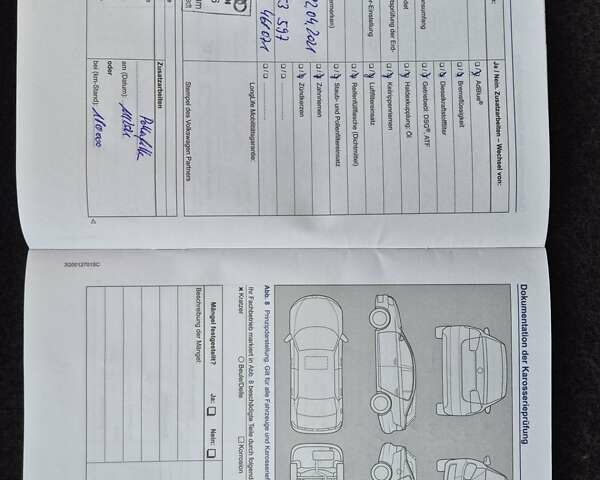 Ja / Nein. Zusatzarbeiten – Wechsel von:
AdBlue®
Bremsflüssigkeit
Dieselkraftstofffilter
Getriebeöl: DSG®, ATF
Haldexkupplung: Öl
Keilrippenriemen
Luftfiltereinsatz
Reifenfüllflasche (Dichtmittel)
Staub- und Pollenfiltereinsatz
Zahnriemen
Zündkerzen
LongLife Mobilitätsgarantie:
Stempel des Volkswagen Partners
Zusatzarbeiten
am (Datum):
oder
bei (km-Stand): 110 000
nsumfang
-Einstellung
tsprüfung der Erd-
ermerken)
22.04.2021
3 597
466071
S00012701SC
Dokumentation der Karosserieprüfung
Abb. 8 Prinzipdarstellung. Gilt für alle Fahrzeuge und Karosserief
Ihr Fachbetrieb markiert in Abb. 8 beschädigte Teile durch folgend
Kratzer
Beule/Delle
Korrosion
Mängel festgestellt?
Ja:
Nein:
Beschreibung der Mängel: